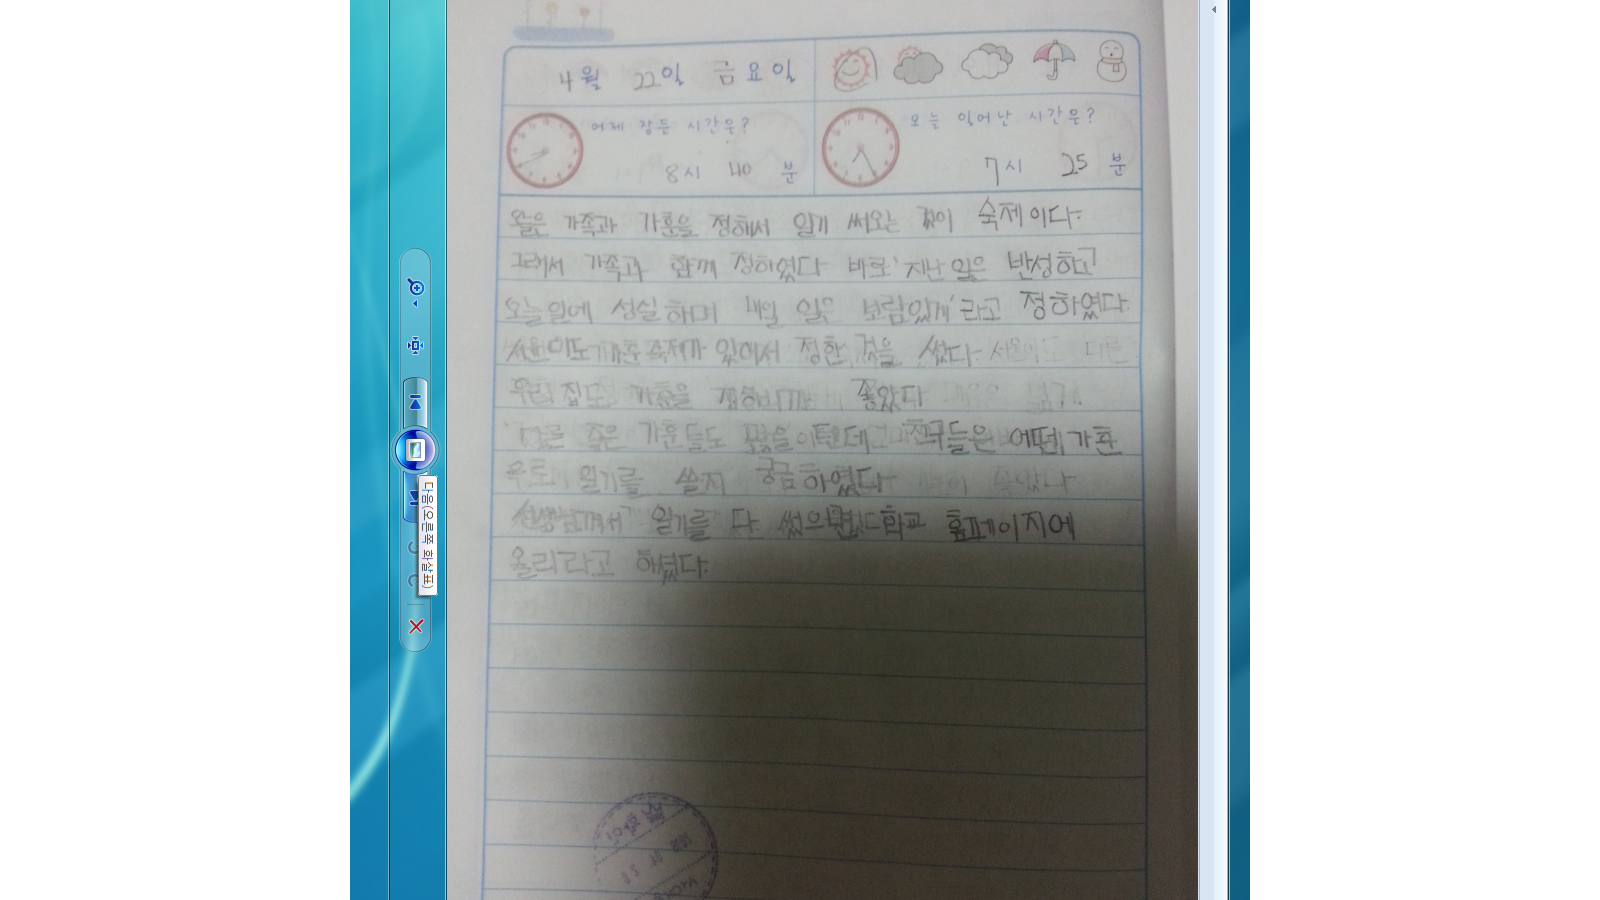 4월 22일 금요일
어제 잠든 시간은?
8시 40 분
오늘 일어난 시간은?
7시 25 분
가족과 가훈을 정해서 일기 써오는 숙제이다.
그래서 가족과 함께 정하였다 바로 '지난 일은 반성하고
오늘일에 성실하며 내일 일은 보람있게'라고 정하였다.
숙제가 있어서 정한 것을 썼다.
우리 집도 가훈을 좋았다
좋은 가훈들도 친구들은 어떤 가훈
으로 일기를 쓸지 궁금하였다
선생님께서 일기를 다 썼으면 학교 홈페이지에
올리라고 하셨다.
다음(오른쪽 화살표)